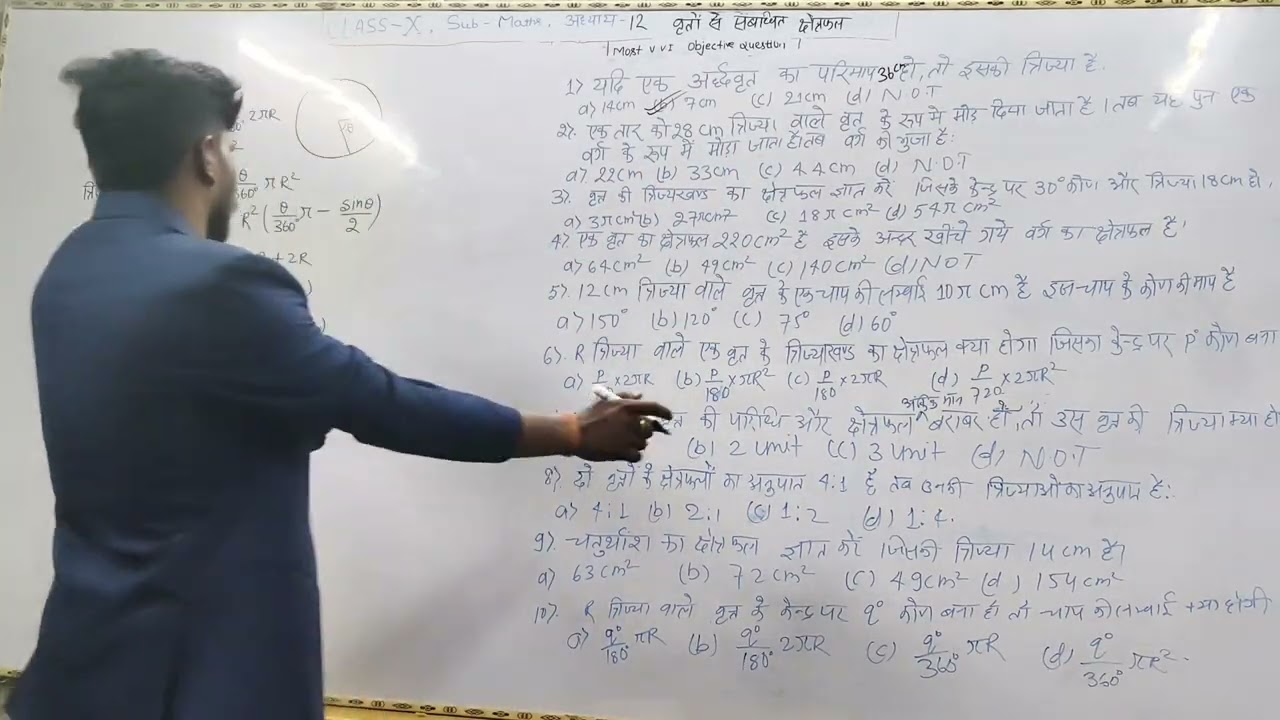 CLASS-X, Sub-Maths, अध्याय-12 वृतों से संबंधित क्षेत्रफल
Most V V I Objective Question
2πR
2
θ/360° πR²
R²(θ/360° π - sinθ/2)
+ 2R
1). यदि एक अर्द्धवृत का परिमाप 36cm हो, तो इसकी त्रिज्या है.
a) 14cm (b) 7cm (c) 21cm (d) N.O.T
2). एक तार को 28 cm त्रिज्या वाले वृत के रूप में मोड़ दिया जाता है। तब यह पुन एक
वर्ग के रूप में मोड़ा जाता है। तब वर्ग की भुजा है:
a) 22cm (b) 33cm (c) 44cm (d) N.O.T
3). वृत की त्रिज्यखण्ड का क्षेत्रफल ज्ञात करें जिसके केन्द्र पर 30° कोण और त्रिज्या 18cm हो,
a) 3πcm² (b) 27πcm² (c) 18π cm² (d) 54π cm²
4) एक वृत का क्षेत्रफल 220cm² है इसके अन्दर खींचे गये वर्ग का क्षेत्रफल है
a) 64cm² (b) 49cm² (c) 140cm² (d) N.O.T
5). 12cm त्रिज्या वाले वृत के एक चाप की लम्बाई 10π cm है इस चाप के कोण की माप है
a) 150° (b) 120° (c) 75° (d) 60°
6). R त्रिज्या वाले एक वृत के त्रिज्याखण्ड का क्षेत्रफल क्या होगा जिसका केन्द्र पर P° कोण बना
a) P ×2πR (b) P/180 ×πR² (c) P/180 ×2πR (d) P/720 ×2πR²
की परिधि और क्षेत्रफल आंकिक मान बराबर हो, तो उस वृत की त्रिज्या क्या हो
(b) 2 unit (c) 3 unit (d) N.O.T
8). दो वृतों के क्षेत्रफलों का अनुपात 4:1 है तब उनकी त्रिज्याओं का अनुपात है:
a) 4:1 (b) 2:1 (c) 1:2 (d) 1:4.
9). चतुर्थांश का क्षेत्रफल ज्ञात करें जिसकी त्रिज्या 14cm है।
a) 63cm² (b) 72cm² (c) 49cm² (d) 154cm²
10). R त्रिज्या वाले वृत के केन्द्र पर q° कोण बना हो तो चाप की लम्बाई क्या होगी
a) q°/180° πR (b) q°/180° 2πR (c) q°/360° πR (d) q°/360° πR².